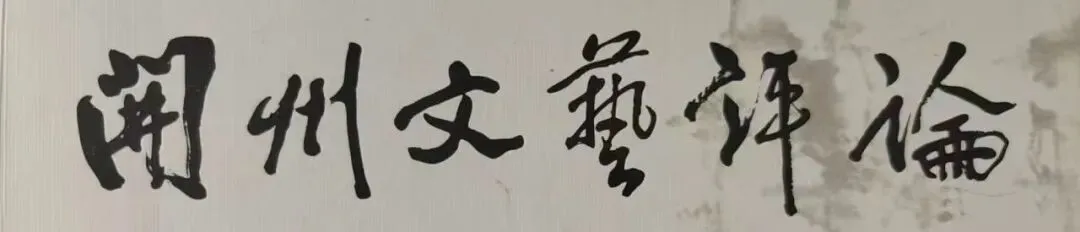 開州文藝評論